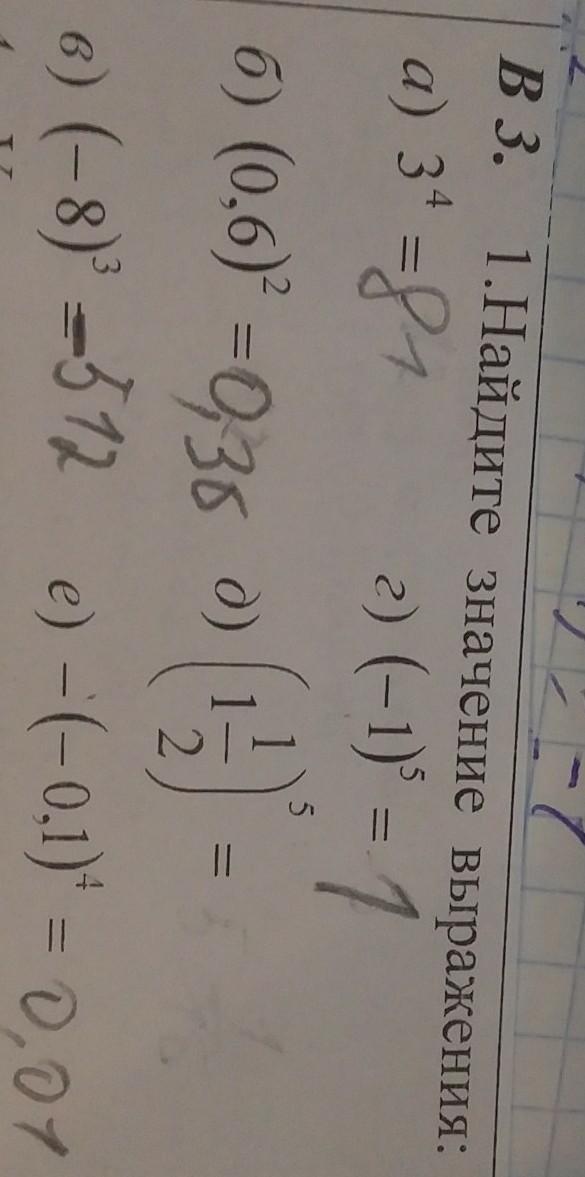 В 3. 1.Найдите значение выражения:
а) 3⁴ = 81
г) (−1)⁵ = 1
б) (0,6)² = 0,36
д) (1 1/2)⁵ =
в) (−8)³ = -512
е) −(−0,1)⁴ = 0,01